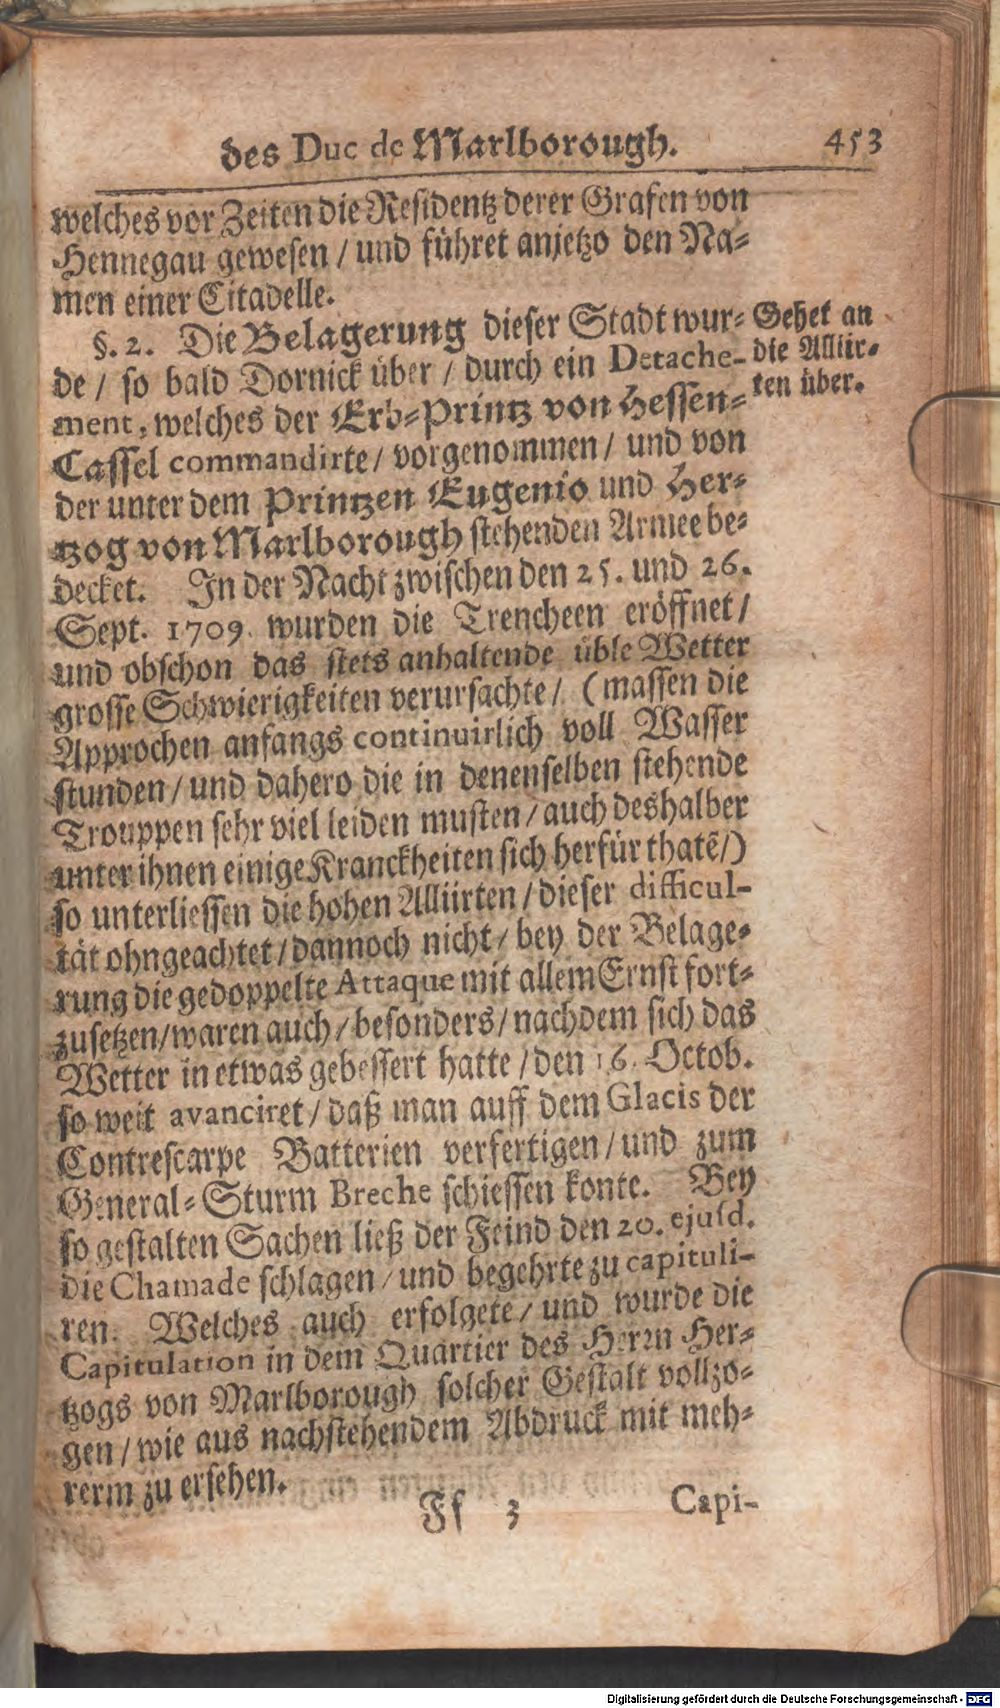 des Duc de Marlborough. 453
welches vor Zeiten die Residentz derer Grafen von
Hennegau gewesen / und führet anjetzo den Na-
men einer Citadelle.
§. 2. Die Belagerung dieser Stadt wur-
de / so bald Dornick über / durch ein Detache-
ment, welches der Erb-Printz von Hessen-
Cassel commandirte / vorgenommen / und von
der unter dem Printzen Eugenio und Her-
tzog von Marlborough stehenden Armee be-
decket. In der Nacht zwischen den 25. und 26.
Sept. 1709. wurden die Trencheen eröffnet /
und obschon das stets anhaltende üble Wetter
grosse Schwierigkeiten verursachte / (massen die
Approchen anfangs continuirlich voll Wasser
stunden / und dahero die in denenselben stehende
Trouppen sehr viel leiden musten / auch deshalber
unter ihnen einige Kranckheiten sich herfür thatē /)
so unterliessen die hohen Alliirten / dieser difficul-
tät ohngeachtet / dannoch nicht / bey der Belage-
rung die gedoppelte Attaque mit allem Ernst fort-
zusetzen / waren auch / besonders / nachdem sich das
Wetter in etwas gebessert hatte / den 16. Octob.
so weit avanciret / daß man auff dem Glacis der
Contrescarpe Batterien verfertigen / und zum
General-Sturm Breche schiessen konte. Bey
so gestalten Sachen ließ der Feind den 20. ejusd.
die Chamade schlagen / und begehrte zu capituli-
ren. Welches auch erfolgete / und wurde die
Capitulation in dem Quartier des Herrn Her-
tzogs von Marlborough solcher Gestalt vollzo-
gen / wie aus nachstehendem Abdruck mit meh-
rerm zu ersehen.
Gehet an
die Alliir-
ten über.
Ff 3 Capi-
Digitalisierung gefördert durch die Deutsche Forschungsgemeinschaft - DFG